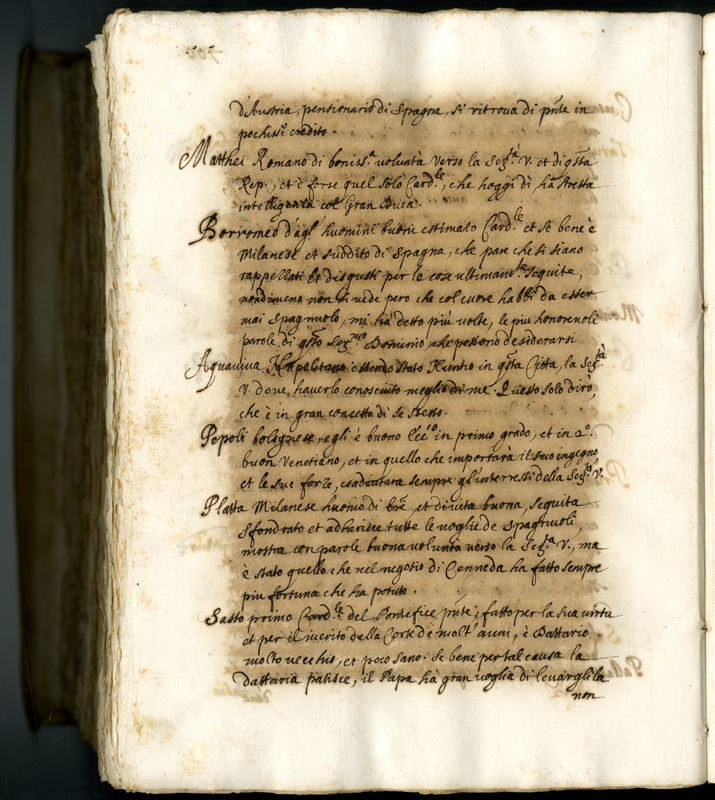 d'Austria, pentionario di Spagna, si ritrova di pnte in
pochiss.o credito.
Matthei Romano di boniss.a voluntà verso la Ser.tà V. et di qsta
Rep., et è forse quel solo Card.le, che hoggi dì ha stretta
intelligenza col Gran Duca.
Borromeo d'agl' huomini buoni estimato Card.le et se bene è
Milanese et suddito di Spagna, che pare che si siano
rappellati li disgusti per le cose ultimam.te seguite,
nondimeno non si vede pero che col cuore habbi da esser
mai Spagnuolo, mi hà detto più volte, le piu honorevoli
parole di qsto Ser.mo Dominio che possono desiderarsi
Aquaviva Napolitano essendo stato Nuntio in qsta Città, la Ser.tà
V. dove haverlo conosciuto meglio di me. Questo solo dirò,
che è in gran concetto di se stesso.
Pepoli bolognese, egli è buono Ecc.co in primo grado, et in 2.o
buon Venetiano, et in quello che importarà il suo ingegno
et le sue forze, coadiutara sempre gl'interressi della Ser.tà V.
Platta Milanese huomo di lre et di vita buona, seguita
Sfondrato et adherisce tutte le voglie de Spagnuoli,
mostra con parole buona voluntà verso la Ser.tà V., ma
è stato quello che nel negotio di Cenneda ha fatto sempre
piu fortuna che ha potuto.
Sasso primo Card.le del Pontefice pnte, fatto per la sua virtu
et per il merito della Corte de molt' anni, è Dattario
molto vecchio, et poco sano. Se bene per tal causa la
Dattaria patisce, il Papa hà gran voglia di levargli la
non